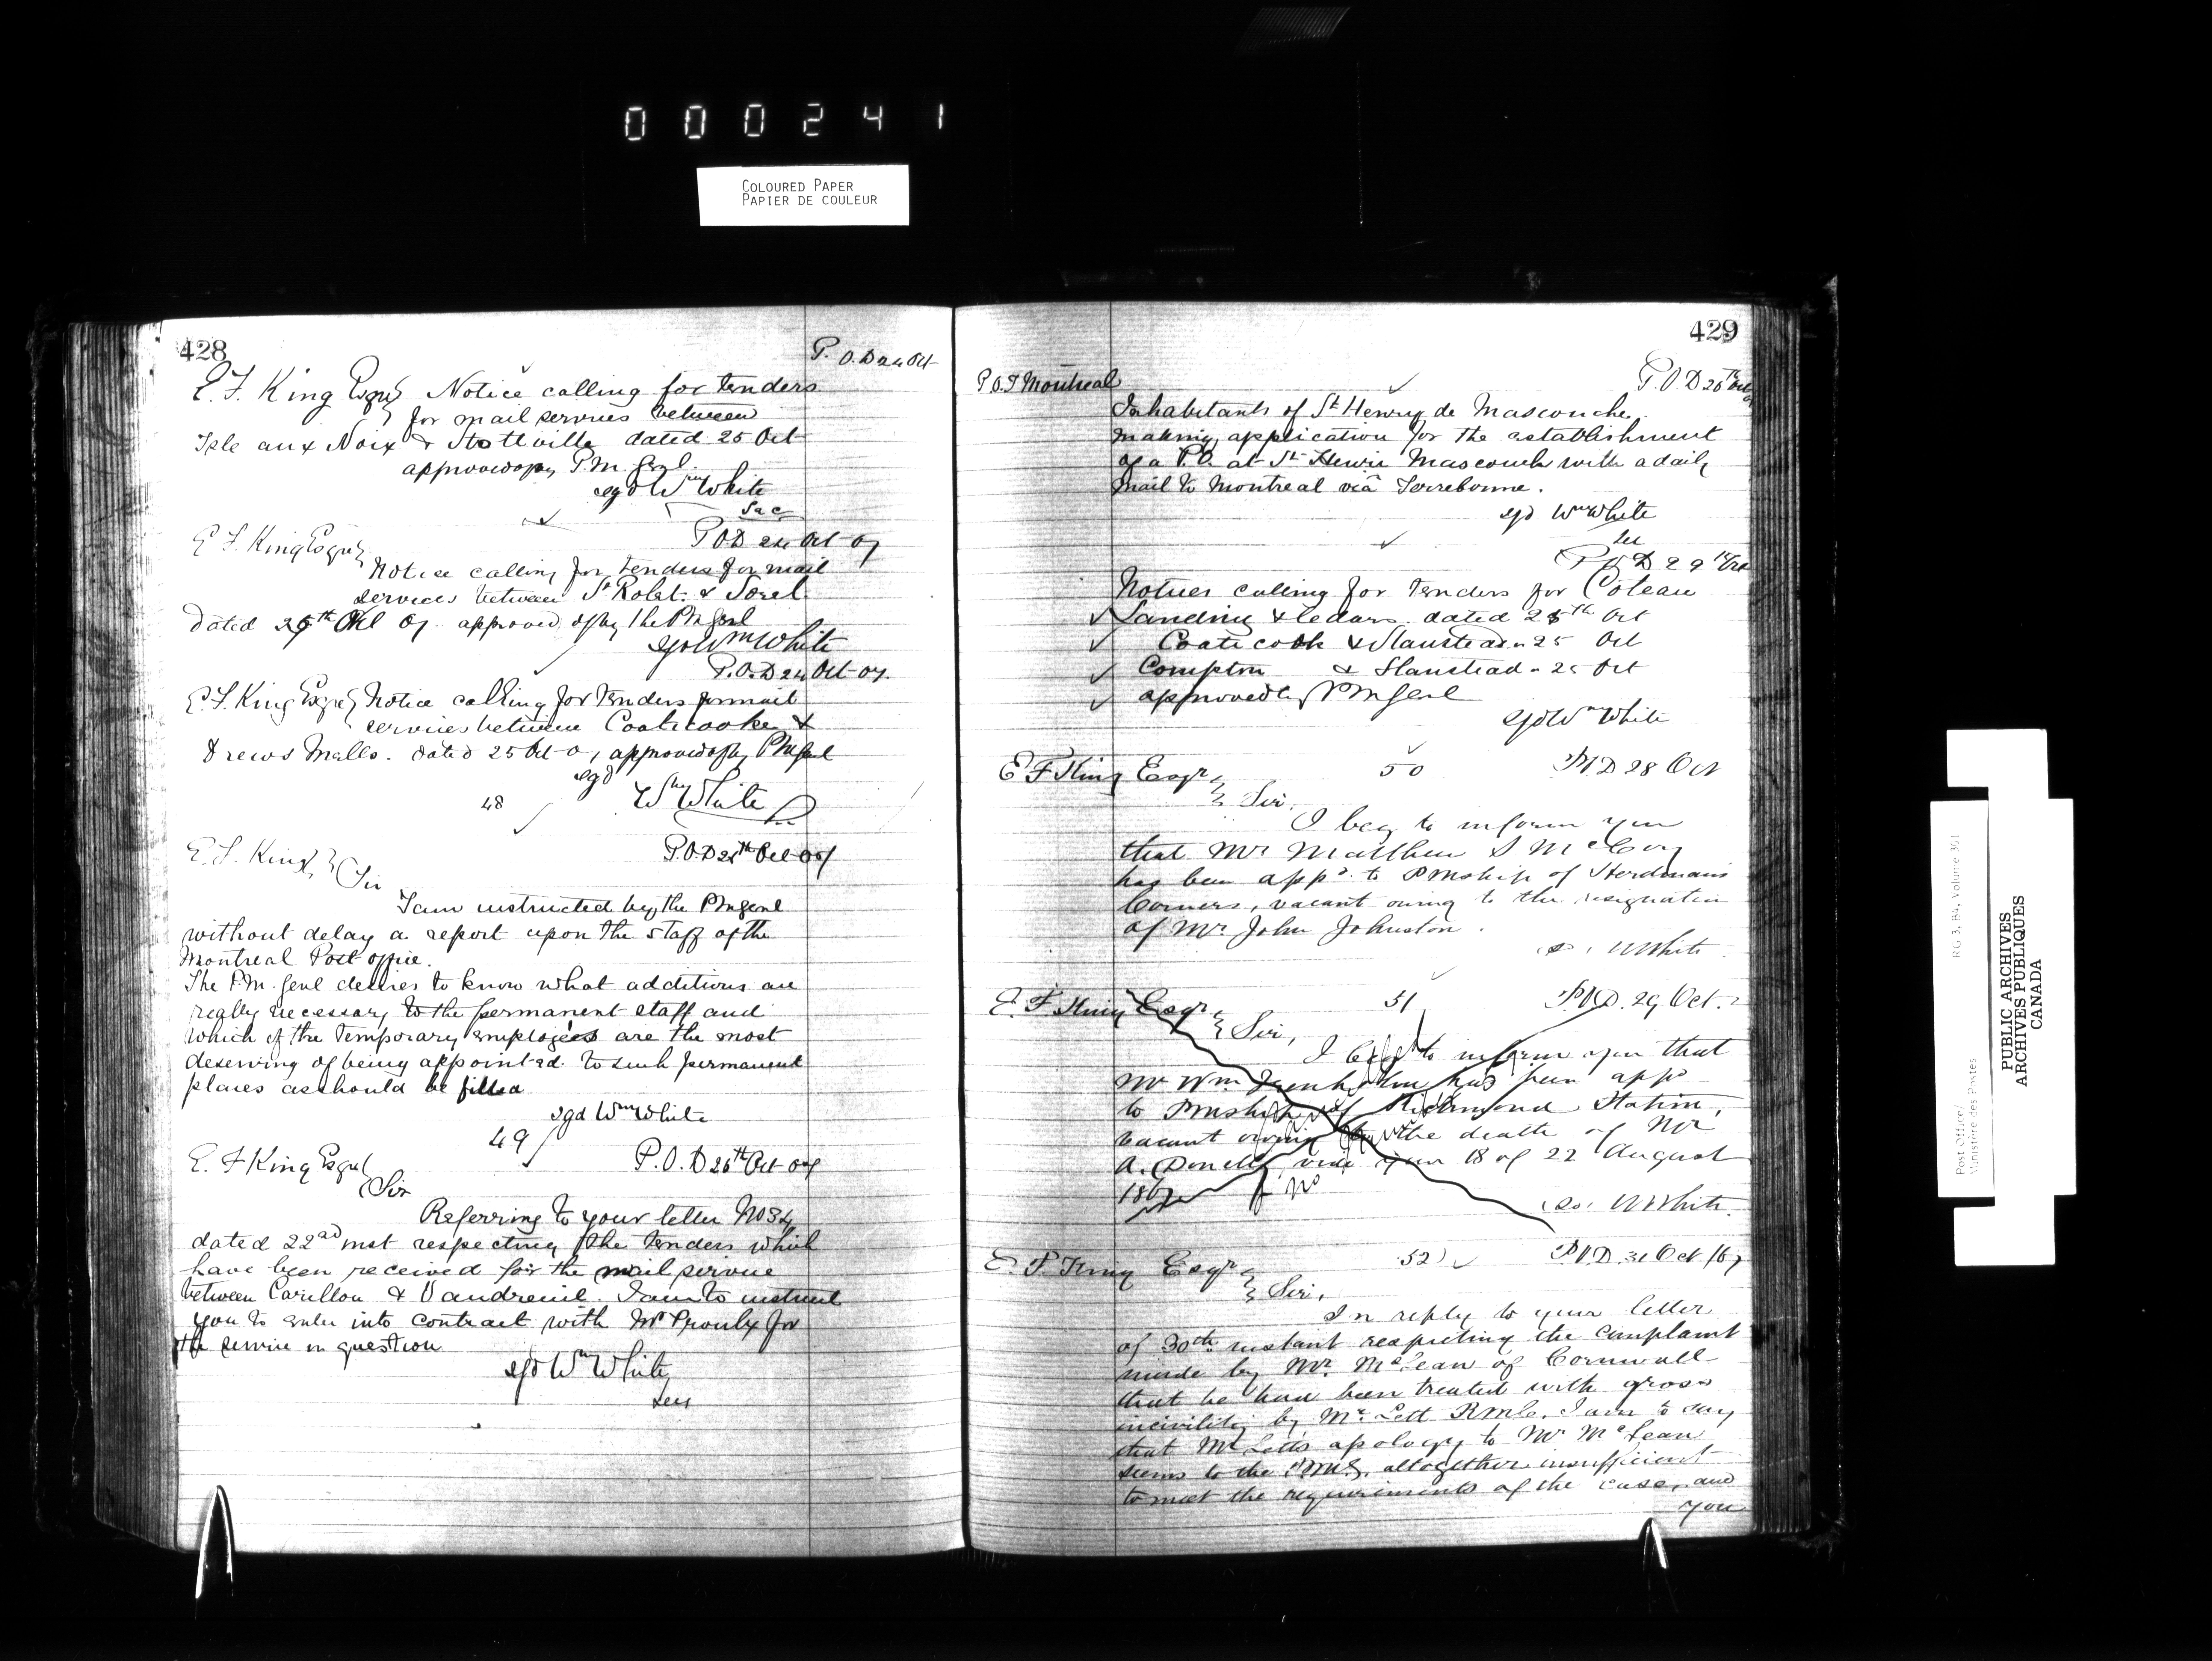 000241
COLOURED PAPER
PAPIER DE COULEUR
428
P. O. D 24 Oct
E. F. King Esqre Notice calling for tenders
for mail services between
Isle aux Noix & Stottville dated 25 Oct
approved of by P.M. Genl.
sgd Wm White
Sec
E F. King Esqre
P O D 24 Oct 67
Notice calling for tenders for mail
services between St Robt. & Sorel
dated 25th Oct 67. approved of by the P M Genl
sgd Wm White
P.O.D 24 Oct 67.
E. F. King Esqre Notice calling for tenders for mail
services between Coaticooke &
Drews Mills. dated 25 Oct 67, approved of by P M Genl
sgd
Wm White
48
E. F. King,
P.O.D 25th Oct 67
Sir
I am instructed by the P M Genl
without delay a report upon the staff of the
Montreal Post office.
The P.M. Genl desires to know what additions are
really necessary to the permanent staff and
which of the temporary employees are the most
deserving of being appointed to such permanent
places as should be filled
sgd Wm White
49
E. F King Esqre
P. O. D 26th Oct 67
Sir
Referring to your letter No 34
dated 22nd inst respecting the tenders which
have been received for the mail service
between Carillon & Vaudreuil. I am to instruct
you to enter into contract with Mr Proulx for
the service in question
sgd Wm White
Secy
429
P.O.I Montreal
P. O D 26th Oct
Inhabitants of St Henry de Masconche.
making application for the establishment
of a P.O. at St Henri Mascouch with a daily
mail to Montreal viâ Terrebonne.
sgd Wm White
Sec
P O D 29th Oct
Notices calling for tenders for Coteau
Landing & Cedars. dated 25th Oct
Coaticook & Stanstead " 25 Oct
Compton & Stanstead " 25 Oct
approved by P M Genl
sgd Wm White
E F King Esqr,
50
P.O.D 28 Oct
Sir,
I beg to inform you
that Mr Matthew S McCoy
has been appd. to PMship of Herdmans
Corners, vacant owing to the resignation
of Mr John Johnston.
W White
E. F King Esqr,
51
P.O.D. 29 Oct.
Sir,
I beg to inform you that
Mr Wm Trenholm has been appd
to PMship of Richmond Station,
vacant owing to the death of Mr
A. Donelly vide your 18 of 22 August
1867
No
W White.
E. F. King Esqr,
52)
P.O.D. 31 Oct /67
Sir,
In reply to your letter
of 30th instant respecting the complaint
made by Mr. McLean of Cornwall
that he had been treated with gross
incivility by Mr. Lett R M C. I am to say
that Mr Letts apology to Mr McLean
seems to the P.M.G. altogether insufficient
to meet the requirements of the case, and
you
Post Office/
Ministère des Postes
RG 3, B4, Volume 301
PUBLIC ARCHIVES
ARCHIVES PUBLIQUES
CANADA